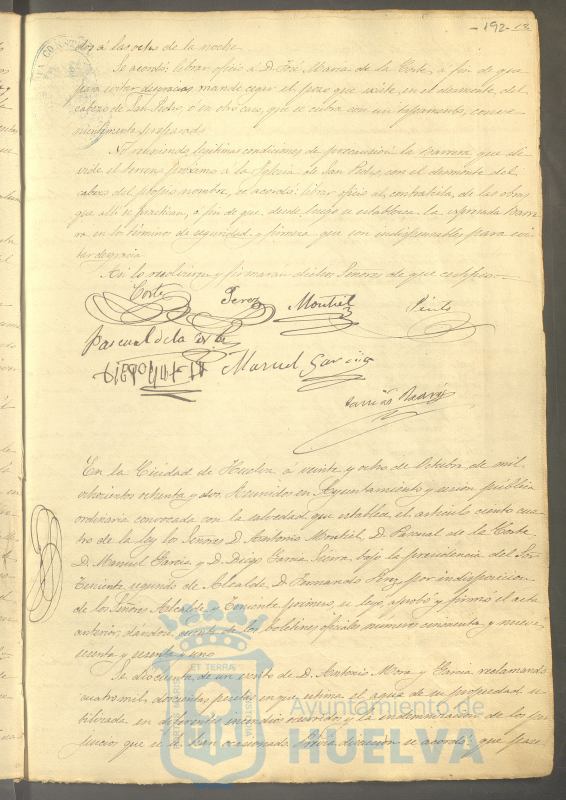 192
dos á las ocho de la noche
Se acordó librar oficio á D. José María de la Corte, á fin de que
para evitar desgracias mande cegar el pozo que existe en el desmonte del
cabezo de San Pedro, ó en otro caso, que se cubra con un tapamento, conve-
nientemente preparado.
No reuniendo legítimas condiciones de precaución la barrera que di-
vide el terreno próximo á la Iglesia de San Pedro, con el desmonte del
cabezo del propio nombre, se acordó librar oficio al contratista de las obras
que allí se practican, á fin de que, desde luego se establezca la expresada barre-
ra en los términos de seguridad y firmeza que son indispensables para evi-
tar desgracia.
Así lo resolvieron y firmaran dichos Señores de que certifico
Corte Perez Montiel Pinto
Pascual de la Corte
Diego Manuel Garcia
En la Ciudad de Huelva á veinte y ocho de Octubre de mil
ochocientos ochenta y dos. Reunidos en Ayuntamiento y sesión pública
ordinaria convocada con la salvedad que establece el artículo ciento cua-
tro de la ley los Señores D. Antonio Montiel, D. Pascual de la Corte
D. Manuel Garcia y D. Diego Garcia bajo la presidencia del Sor.
Teniente segundo de Alcalde D. Fernando Perez por indisposicion
de los Señores Alcalde y Teniente primero, se leyó, aprobó y firmó el acta
anterior, dándose cuenta de los boletines oficiales números cincuenta y nueve
sesenta y sesenta y uno
Se dio cuenta de un escrito de D. Antonio Mora y Garcia reclamando
cuatro mil doscientas pesetas en que estima el agua de su propiedad u-
tilizada en diferentes incendios ocurridos y la indemnización de los per-
juicios que se le han ocasionado. Previa discusión se acordó que pase
Ayuntamiento de
HUELVA